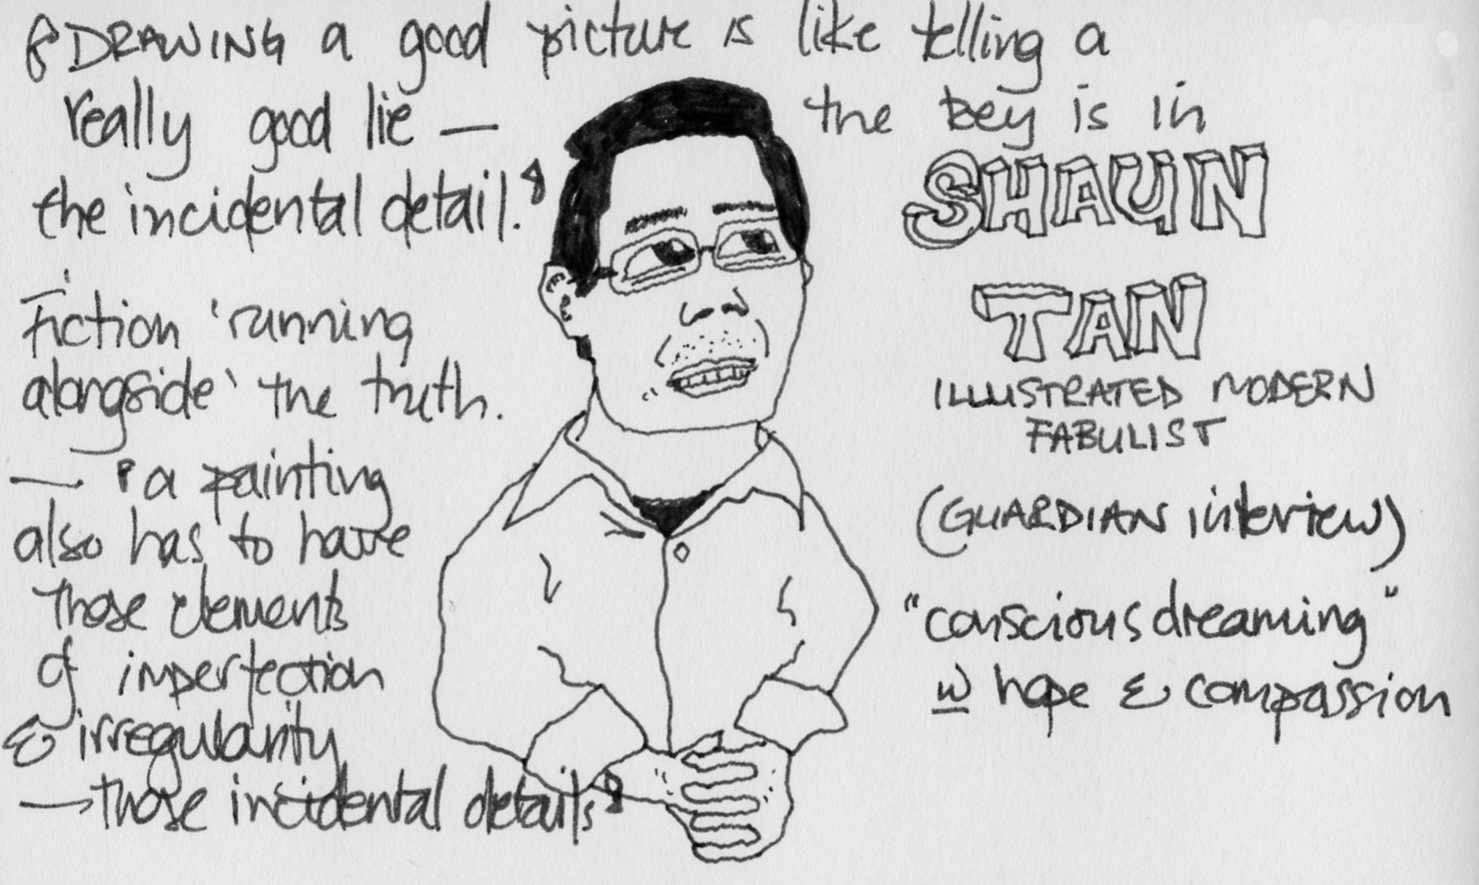 "DRAWING a good picture is like telling a
really good lie — the key is in
the incidental detail."
— Fiction 'running
alongside' the truth.
— "a painting
also has to have
those elements
of imperfection
& irregularity
— those incidental details"
SHAUN
TAN
ILLUSTRATED MODERN
FABULIST
(GUARDIAN interview)
"conscious dreaming"
w hope & compassion